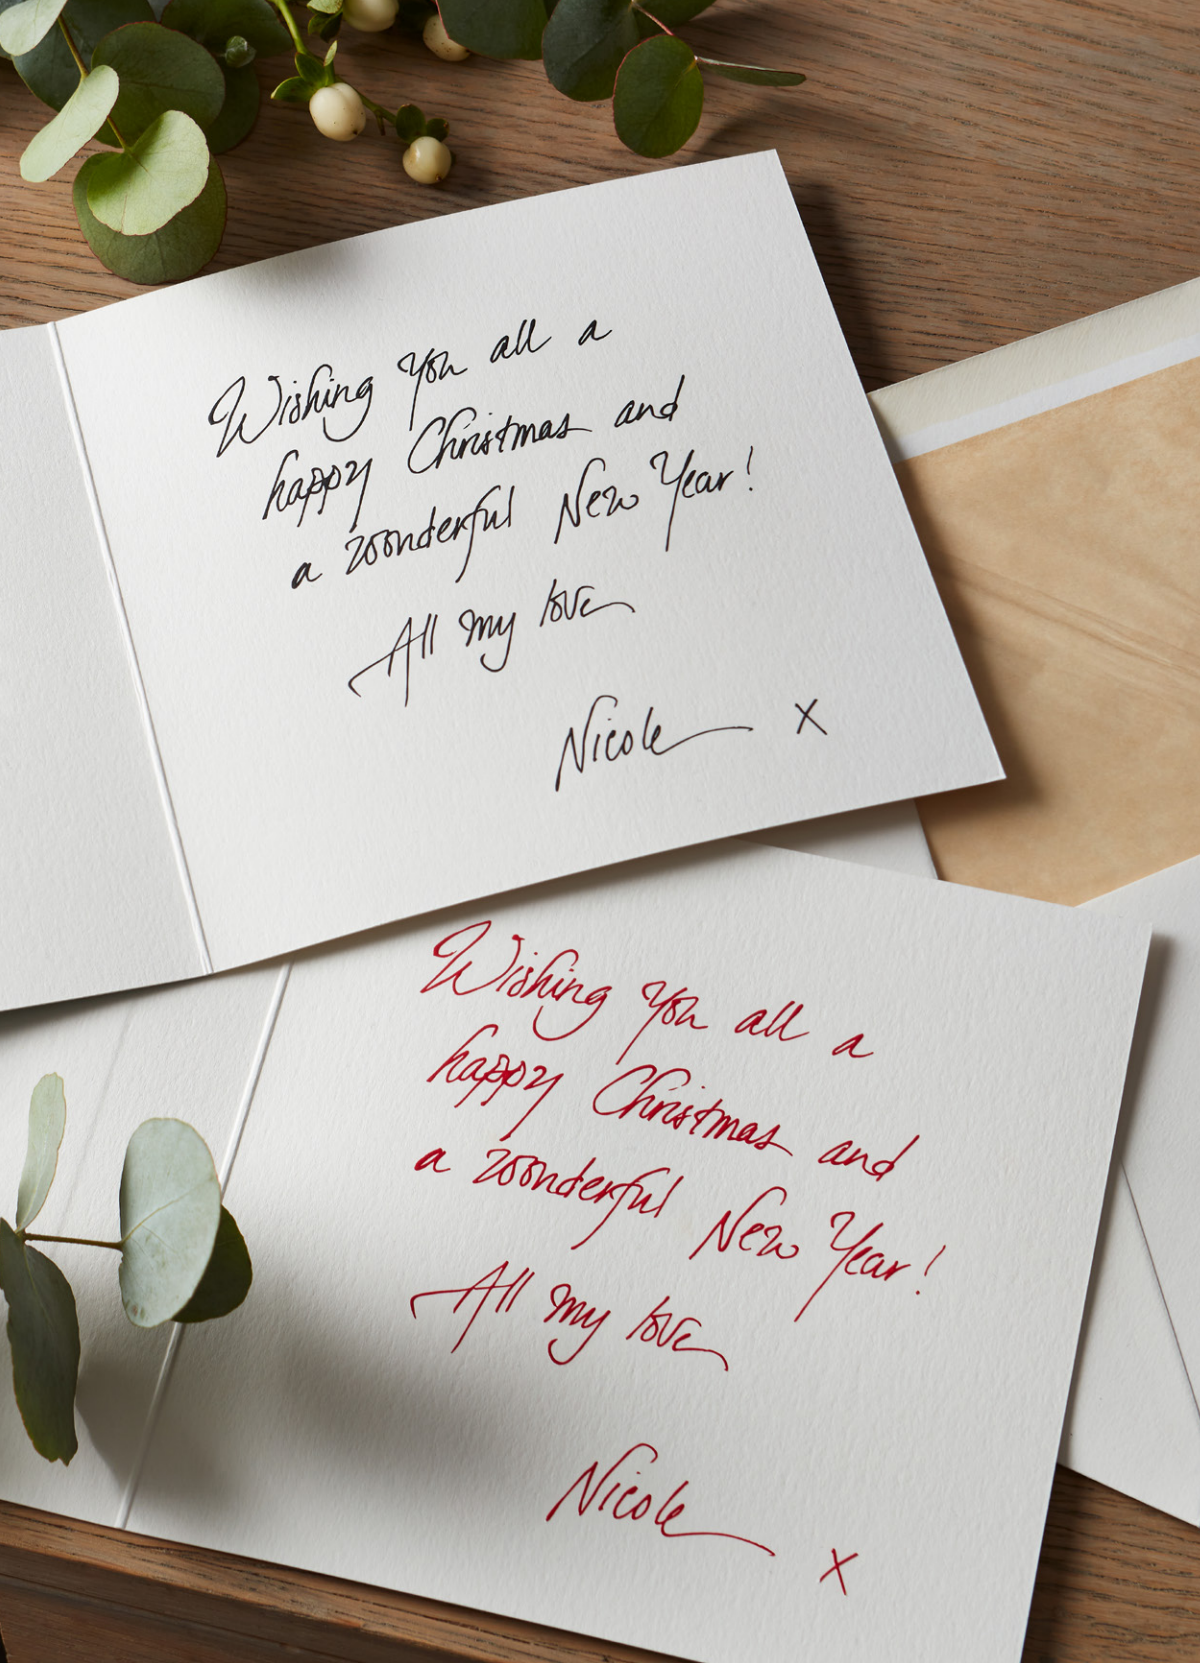 Wishing you all a
happy Christmas and
a wonderful New Year!
All my love
Nicole x
Wishing you all a
happy Christmas and
a wonderful New Year!
All my love
Nicole
x